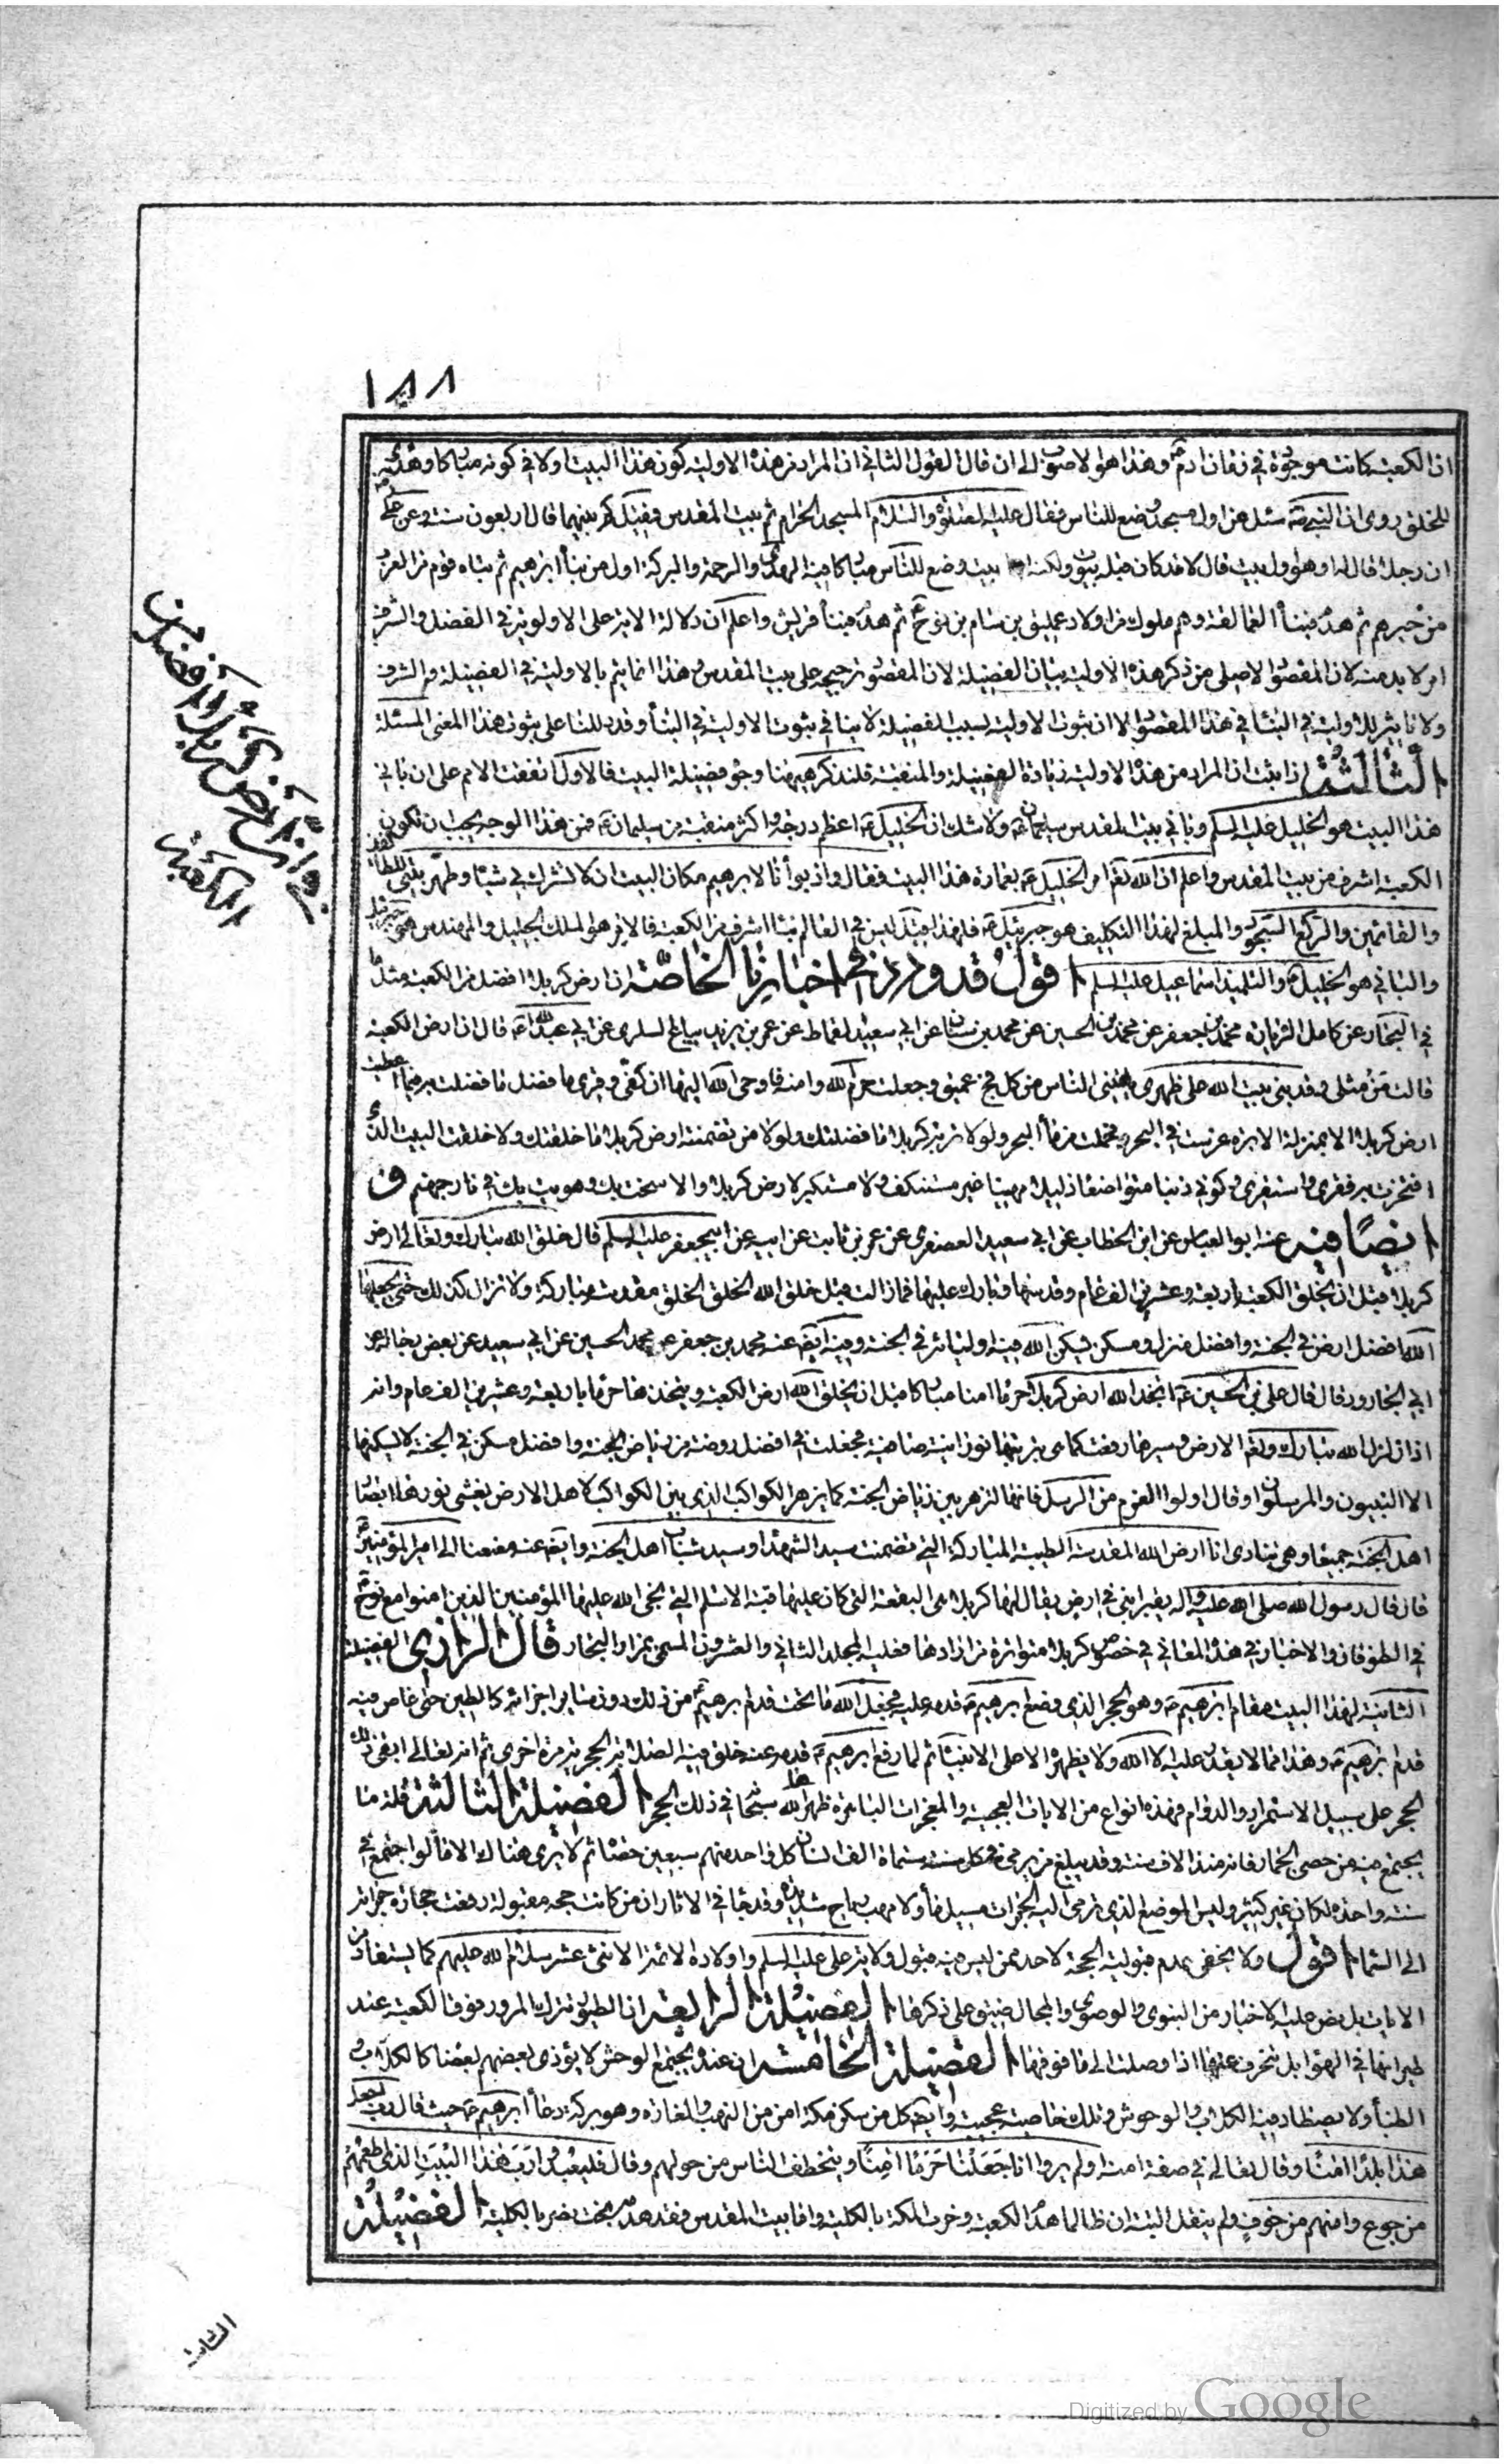 ١٨٨
ان الكعبة كانت موجودة في زمان ادم ع وهذا هو الاصوب الى ان قال القول الثاني ان المراد من هذه الاولية كون هذا البيت اولا في كونه مباركا وهدى
للخلق روى ان النبي ص سئل عن اول مسجد وضع للناس فقال عليه الصلوة والسلام المسجد الحرام ثم بيت المقدس فقيل كم بينهما قال اربعون سنة وعن علي
ان رجلا قال له اهو اول بيت قال لا قد كان قبله بيوت ولكنه اول بيت وضع للناس مباركا فيه الهدى والرحمة والبركة اول من بناه ابرهيم ثم بناه قوم من العرب
من جرهم ثم هدم فبناه العمالقة وهم ملوك من اولاد عمليق بن سام بن نوح ع ثم هدم فبناه قريش واعلم ان دلالة الاية على الاولوية في الفضل والشرف
امر لا بد منه لان المقصود الاصلي من ذكر هذه الاولية بيان الفضيلة لان المقصود ترجيحه على بيت المقدس وهذا انما يتم بالاولية في الفضيلة والشرف
ولا تاثير للاولية في البناء في هذا المقصود الا ان ثبوت الاولية لسبب الفضيلة لا ينافي ثبوت الاولية في البناء وقد دللنا على ثبوت هذا المعنى المسئلة
الثالثة اذا ثبت ان المراد من هذه الاولية زيادة الفضيلة والمنقبة فلنذكر هيهنا وجوه فضيلة البيت فالاول اتفقت الامم على ان باني
هذا البيت هو الخليل عليه السلم وباني بيت المقدس سليمان ع ولا شك ان الخليل ع اعظم درجة واكثر منقبة من سليمان ع فمن هذا الوجه يجب ان تكون
الكعبة اشرف من بيت المقدس واعلم ان الله تع امر الخليل ع بعمارة هذا البيت فقال واذ بوأنا لابرهيم مكان البيت ان لا تشرك بي شيئا وطهر بيتي للطائفين
والقائمين والركع السجود والمبلغ لهذا التكليف هو جبرئيل ع فلهذا قيل ليس في العالم بناء اشرف من الكعبة فالامر هو الملك الجليل والمهندس هو جبرئيل
والباني هو الخليل ع والتلميذ اسماعيل عليه السلم اقول قد ورد في اخبارنا الخاصة ان ارض كربلا افضل من الكعبة مثل ما
في البحار عن كامل الزيارة محمد بن جعفر عن محمد بن الحسين عن محمد بن سنان عن ابي سعيد القماط عن عمر بن يزيد بياع السابري عن ابي عبدالله ع قال ان ارض الكعبة
قالت من مثلي وقد بني بيت الله على ظهري ياتيني الناس من كل فج عميق وجعلت حرم الله وامنه فاوحى الله اليها ان كفي وقري ما فضل ما فضلت به فيما اعطيت
ارض كربلا الا بمنزلة الابرة غرست في البحر فحملت من ماء البحر ولولا تربة كربلا ما فضلتك ولولا من تضمنته ارض كربلا ما خلقتك ولا خلقت البيت الذي
افتخرت به فقري واستقري وكوني ذنبا متواضعا ذليلا مهينا غير مستنكف ولا مستكبر لارض كربلا والا سخت بك وهويت بك في نار جهنم و
ايضا فيه عنه ابو العباس عن ابن الخطاب عن ابي سعيد العصفري عن عمرو بن ثابت عن ابيه عن ابيجعفر عليه السلم قال خلق الله تبارك وتعالى ارض
كربلا قبل ان يخلق الكعبة باربعة وعشرين الف عام وقدسها وبارك عليها فما زالت قبل خلق الله الخلق مقدسة مباركة ولا تزال كذلك حتى يجعلها
الله افضل ارض في الجنة وافضل منزل ومسكن يسكن الله فيه اوليائه في الجنة وفيه ايضا عنه محمد بن جعفر عن محمد الحسين عن ابي سعيد عن بعض رجاله عن
ابي الجارود قال قال علي بن الحسين ع اتخذ الله ارض كربلا حرما امنا مباركا قبل ان يخلق الله ارض الكعبة ويتخذها حرما باربعة وعشرين الف عام وانه
اذا زلزل الله تبارك وتعالى الارض وسيرها رفعت كما هي بتربتها نورانية صافية فجعلت في افضل روضة من رياض الجنة وافضل مسكن في الجنة لا يسكنها
الا النبيون والمرسلون او قال اولوا العزم من الرسل فانها لتزهر بين رياض الجنة كما يزهر الكوكب الدري بين الكواكب لاهل الارض يغشى نورها ابصار
اهل الجنة جميعا وهي تنادي انا ارض الله المقدسة الطيبة المباركة التي تضمنت سيد الشهداء وسيد شباب اهل الجنة وايضا عنه مرفعا الى امير المؤمنين ع
قال قال رسول الله صلى الله عليه واله يقبر ابني في ارض يقال لها كربلا هي البقعة التي كان عليها قبة الاسلم التي نجى الله عليها المؤمنين الذين امنوا مع نوح ع
في الطوفان والاخبار في هذه المعاني في خصوص كربلا متواترة من ارادها فعليه المجلد الثاني والعشرون المسمى بمزار البحار قال الرازي الفضيلة
الثانية لهذا البيت مقام ابرهيم ع وهو الحجر الذي وضع ابرهيم ع قدمه عليه فجعل الله ما تحت قدم ابرهيم ع من ذلك دون ساير اجزائه كالطين حتى غاص فيه
قدم ابرهيم ع وهذا مما لا يقدر عليه الا الله ولا يظهره الا على الانبياء ثم لما رفع ابرهيم ع قدمه عنه خلق فيه الصلابة الحجرية مرة اخرى ثم انه تعالى ابقى ذلك
الحجر على سبيل الاستمرار والدوام فهذه انواع من الايات العجيبة والمعجزات الباهرة ظهر الله سبحانه في ذلك الحجر الفضيلة الثالثة قلة ما
يجتمع فيه من حصى الجمار فانه منذ الاف سنة وقد يبلغ من يرمي في كل سنة ستماة الف انسان كل واحد منهم سبعين حصاة ثم لا يرى هناك الا ما لو اجتمع في
سنة واحدة لكان غير كثير وليس الموضع الذي ترمى اليه الجمرات مسيل ماء ولا مهب رياح شديدة وقد جاء في الاثار ان من كانت حجه مقبولة رفعت حجارة جمراته
الى السماء اقول ولا يخفى عدم قبولية الحجة لاحد ممن ليس فيه قبول ولاية علي عليه السلم واولاده الائمة الاثنى عشر سلام الله عليهم كما يستفاد من
الايات بل نص عليه الاخبار من النبوي والوصوي والمجال ضيق على ذكرها الفضيلة الرابعة ان الطيور تترك المرور فوق الكعبة عند
طيرانها في الهواء بل تنحرف عنها اذا وصلت الى ما فوقها الفضيلة الخامسة ان عنده يجتمع الوحش لا يؤذي بعضهم بعضا كالكلاب و
الظباء ولا يصطاد فيه الكلاب والوحوش وتلك خاصية عجيبة وايضا كل من سكن مكة امن من النهب والغارة وهو بركة دعاء ابرهيم ع حيث قال رب اجعل
هذا بلدا امنا وقال تعالى في صفة امنه اولم يروا انا جعلنا حرما امنا ويتخطف الناس من حولهم وقال فليعبدوا رب هذا البيت الذي اطعمهم
من جوع وامنهم من خوف ولم ينقل البتة ان ظالما هدم الكعبة وخرب المكة بالكلية واما بيت المقدس فقد هدمه بخت نصر بالكلية الفضيلة
في ان ارض كربلا افضل من
الكعبة